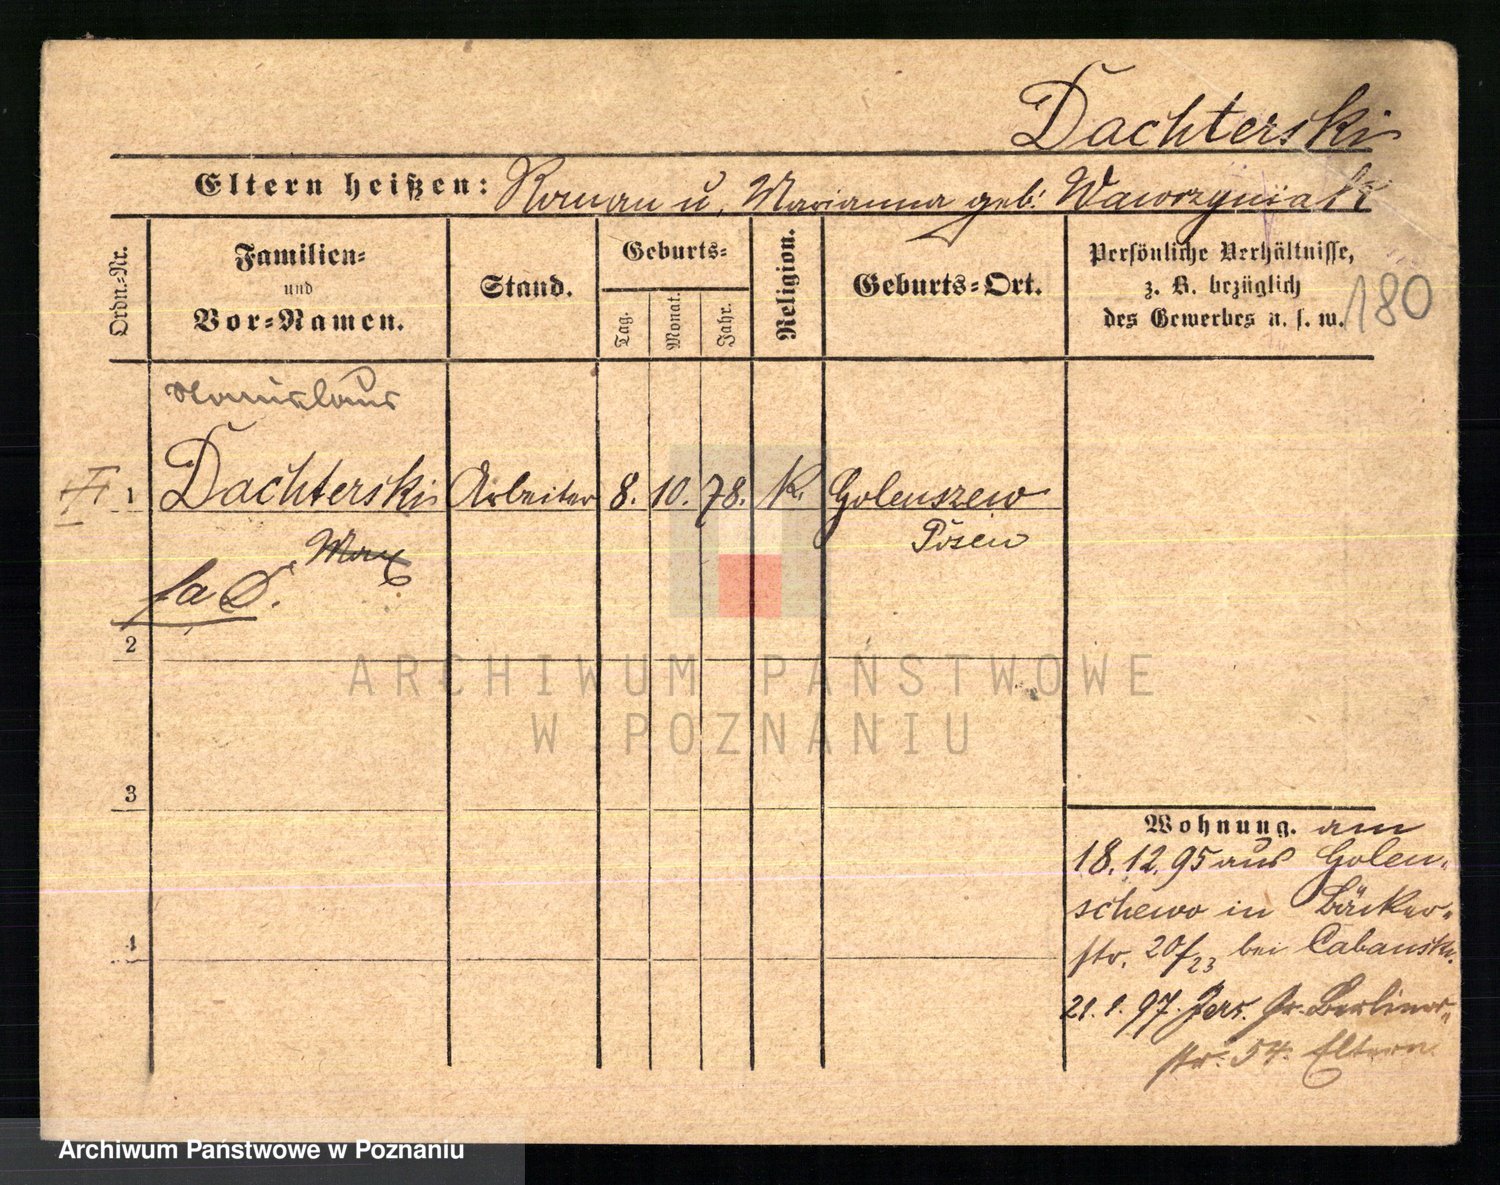 Dachterski
Eltern heißen: Roman u. Marianna geb. Wawrzyniak
Ordn.-Nr.
Familien-
und
Vor-Namen.
Stand.
Geburts-
Tag.
Monat.
Jahr.
Religion.
Geburts-Ort.
Persönliche Verhältnisse,
z. B. bezüglich
des Gewerbes u. s. w.
180
Stanislaus
1 Dachterski Arbeiter 8. 10. 78. K. Golenszewo
Posen
Max
2
3
4
Wohnung. am
18.12.95 aus Golen-
schewo in Bäcker-
str. 20/23 bei Cabanski.
21.1.97. Jers. Gr. Berliner-
str. 54. Eltern
ARCHIWUM PAŃSTWOWE
W POZNANIU
Archiwum Państwowe w Poznaniu